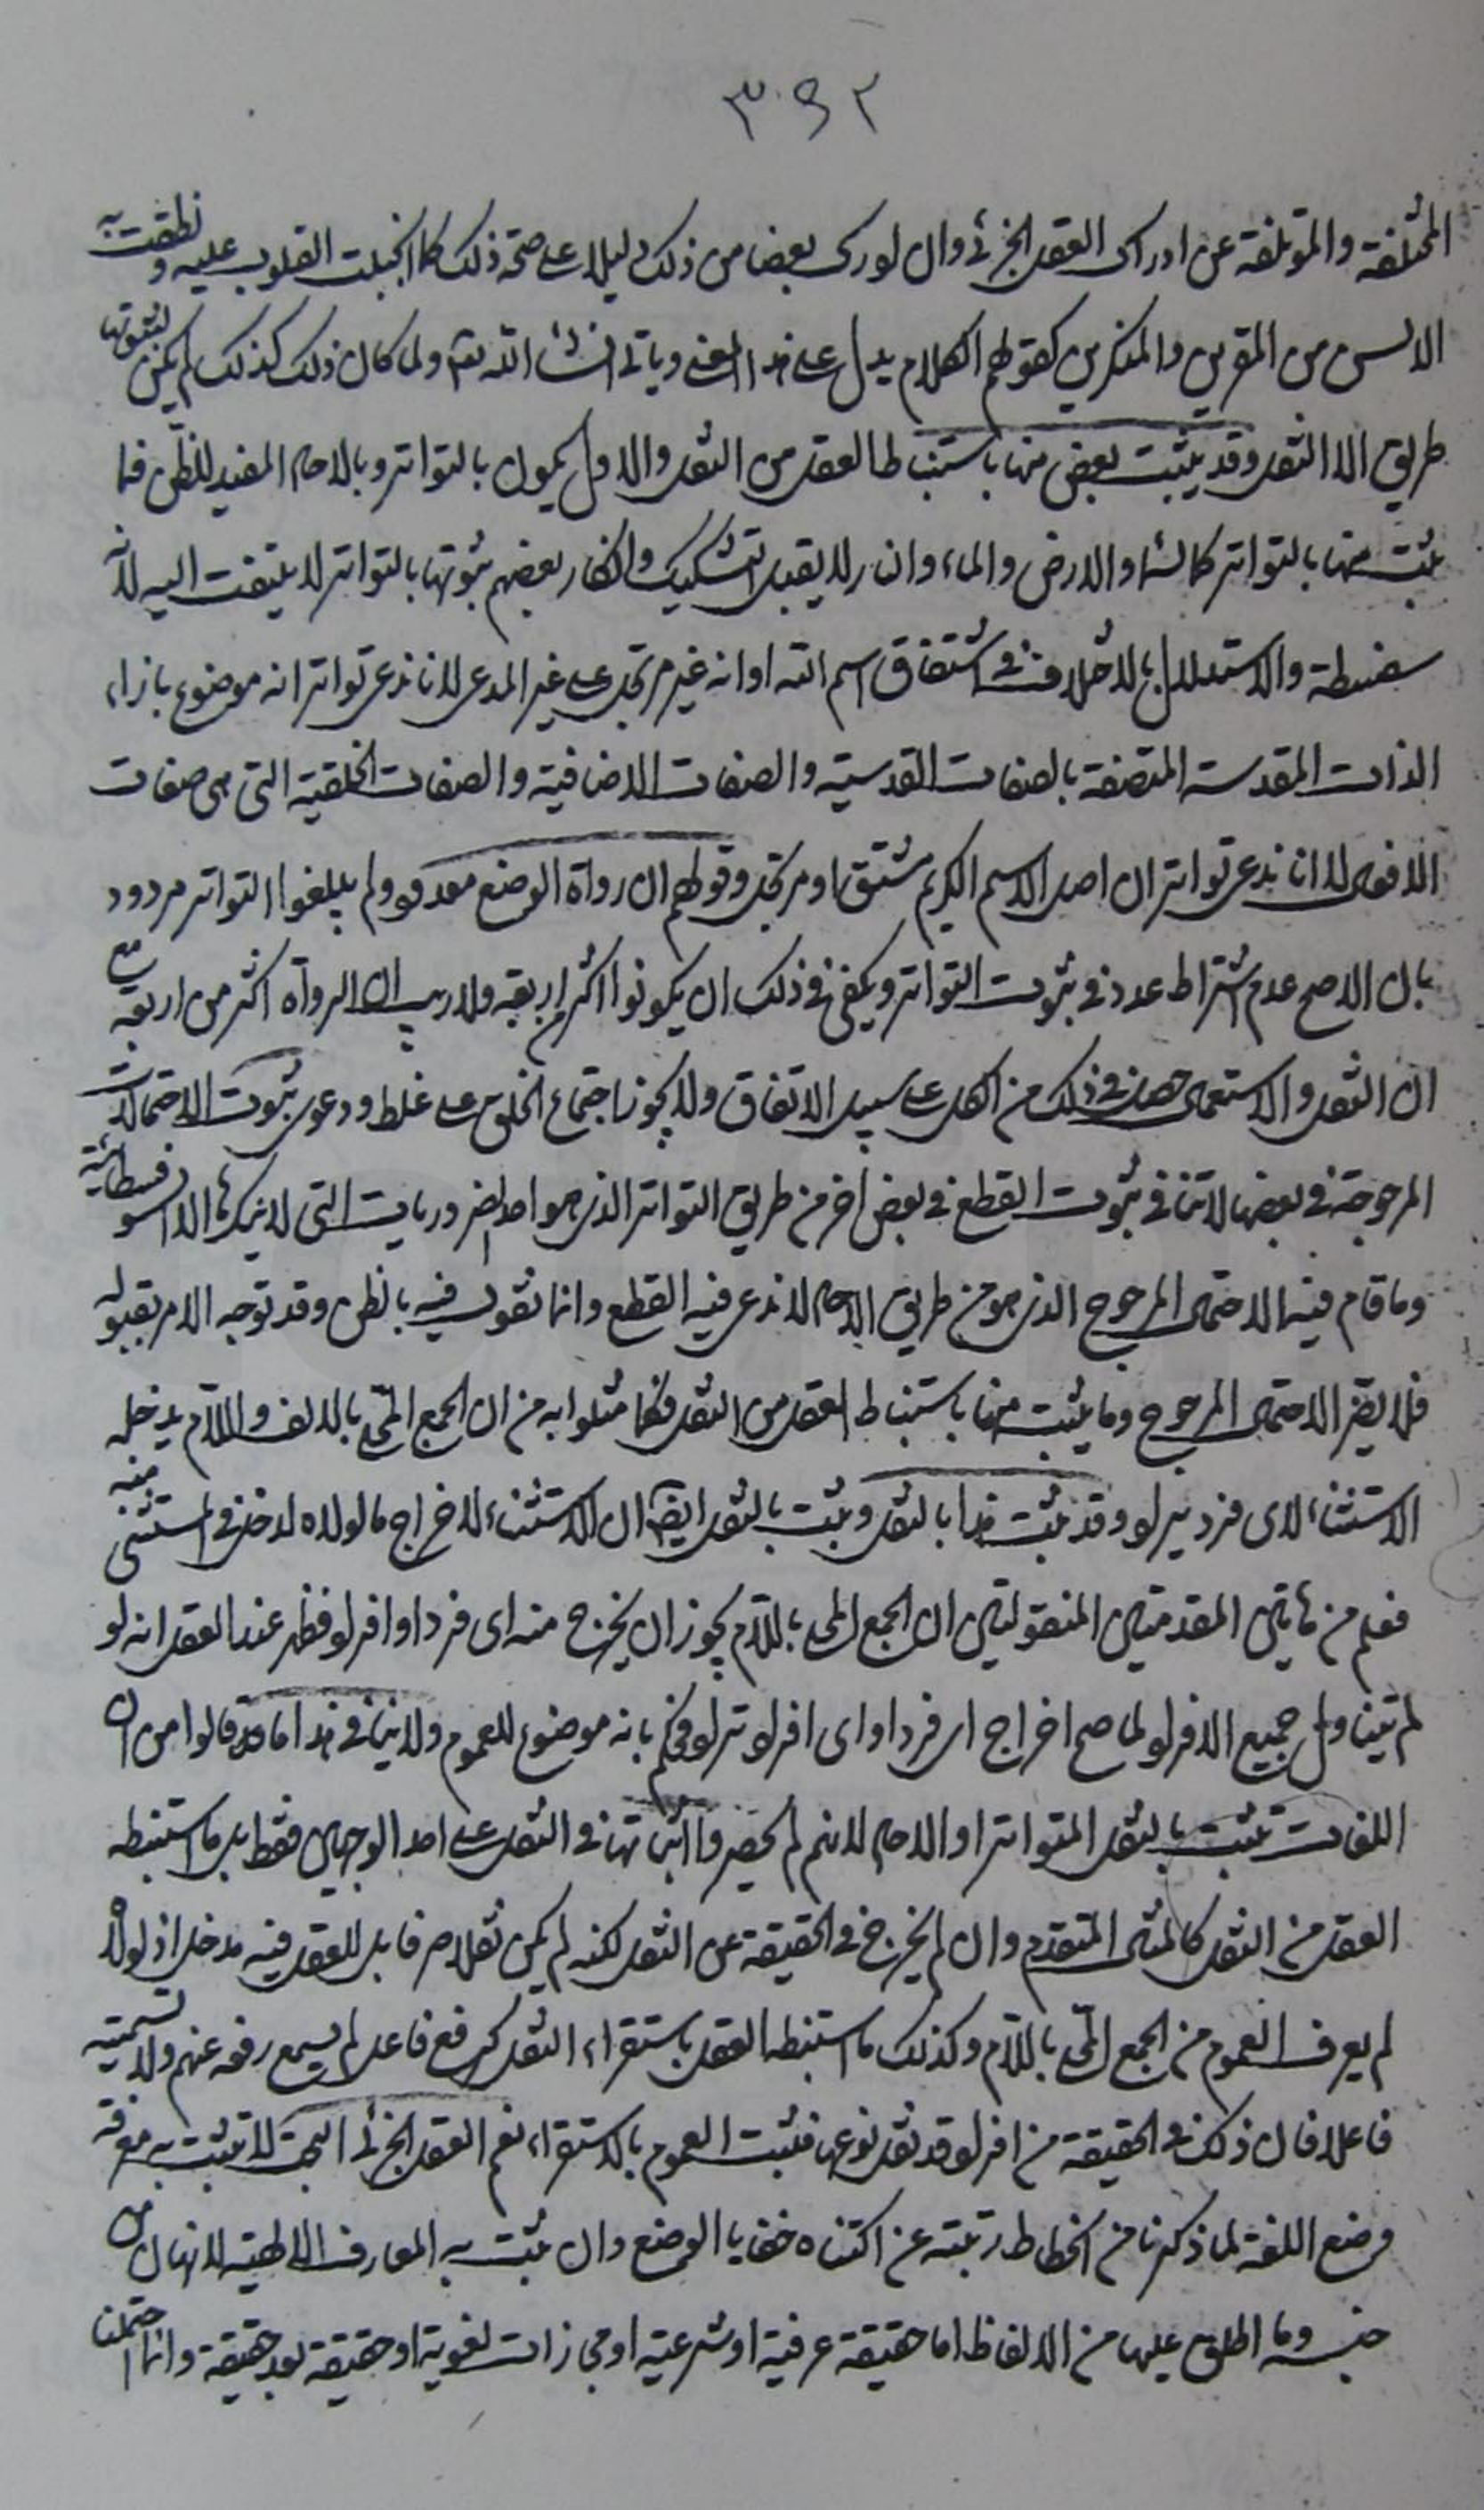 ٣٩٢
المختلفة والمؤتلفة عن ادراك العقل الجزئي وان ادرك بعضا من ذلك دليلا على صحة ذلك كما انجبلت القلوب عليه ونطقت به
الالسن من المقرين والمنكرين كقولهم الكلام يدل على هذا المعنى وياتي انشاء الله تعالى ولما كان ذلك كذلك لم يكن لثبوتها
طريق الا النقل وقد يثبت بعض منها باستنباط العقل من النقل والاول يكون بالتواتر وبالاحاد المفيد للظن فما
ثبت منها بالتواتر كالسماء والارض والماء والنار لا يقبل التشكيك وانكار بعضهم ثبوتها بالتواتر لا يلتفت اليه لانه
سفسطة والاستدلال بالاختلاف في اشتقاق اسم الله او انه غير مرتجل على غير المدعى لانا ندعى تواتر انه موضوع بازاء
الذات المقدسة المتصفة بالصفات القدسية والصفات الاضافية والصفات الخلقية التي هى صفات
الافعال لا انا ندعى تواتر ان اصل الاسم الكريم مشتق او مرتجل وقولهم ان رواة الوضع معدودون ولم يبلغوا التواتر مردود
بان الاصح عدم اشتراط عدد في ثبوت التواتر ويكفي في ذلك ان يكونوا اكثر من اربعة ولا ريب ان الرواة اكثر من اربعة مع
ان النقل والاستعمال حصل في ذلك من الكل على سبيل الاتفاق ولا يجوز اجتماع الخلق على غلط ودعوى ثبوت الاحتمالات
المرجوحة في بعضها لا تنافي ثبوت القطع في بعض اخر من طريق التواتر الذي هو احد الضروريات التي لا ينكرها الا السوفسطائية
وما قام فيه الاحتمال المرجوح الذي هو من طريق الاحاد لا ندعى فيه القطع وانما نقول فيه بالظن وقد توجه الامر بقبوله
فلا يضر الاحتمال المرجوح وما يثبت منها باستنباط العقل من النقل فكما مثلوا به من ان الجمع المحلى بالالف واللام يدخله
الاستثناء لاى فرد يراد وقد ثبت هذا بالنقل وثبت بالنقل ايضا ان الاستثناء لاخراج ما لولاه لدخل في المستثنى منه
فعلم من هاتين المقدمتين المنقولتين ان الجمع المحلى باللام يجوز ان يخرج منه اى فرد او افراد فظهر عند العقل انه لو
لم يتناول جميع الافراد لما صح اخراج اى فرد او اى افراد تراد فحكم بانه موضوع للعموم ولا ينافي هذا ما قد قالوا من ان
اللغات تثبت بالنقل المتواتر او الاحاد لانهم لم يحصروا اثباتها في النقل على احد الوجهين فقط بل ما استنبطه
العقل من النقل كالمثال المتقدم وان لم يخرج في الحقيقة عن النقل لكنه لم يكن نقلا صرفا بل للعقل فيه مدخل اذ لولاه
لم يعرف العموم من الجمع المحلى باللام وكذلك ما استنبطه العقل باستقراء النقل كرفع فاعل لم يسمع رفعه عنهم ولا تسميته
فاعلا فان ذلك في الحقيقة من افراد قد نقل نوعها فثبت العموم بالاستقراء نعم العقل الجزئي البحت لا تثبت به معرفة
وضع اللغة لما ذكرنا من انحطاط رتبته عن اكتناه خفايا الوضع وان ثبت به المعارف الالهية لانها من
جنسه وما اطلق عليها من الالفاظ اما حقيقة عرفية او شرعية او مجازات لغوية او حقيقة بعد حقيقة وانما احتملنا